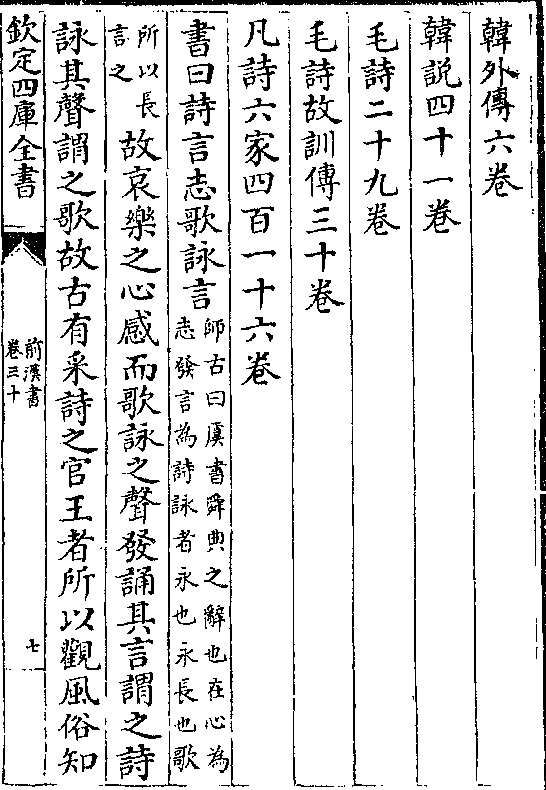 韓外傳六卷
韓説四十一卷
毛詩二十九卷
毛詩故訓傳三十卷
凡詩六家四百一十六卷
書曰詩言志歌詠言師古曰虞書舜典之辭也在心為
志發言為詩詠者永也永長也歌
所以長
言之故哀樂之心感而歌詠之聲發誦其言謂之詩
詠其聲謂之歌故古有采詩之官王者所以觀風俗知
欽定四庫全書
前漢書
卷三十
七